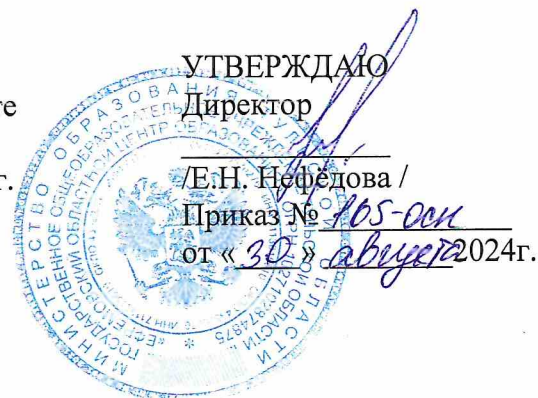 УТВЕРЖДАЮ
Директор
те
г.
/Е.Н. Нефёдова /
Приказ № 165-осн
от « 30 » августа 2024г.
МИНИСТЕРСТВО ОБРАЗОВАНИЯ ТУЛЬСКОЙ ОБЛАСТИ
ГОСУДАРСТВЕННОЕ ОБЩЕОБРАЗОВАТЕЛЬНОЕ УЧРЕЖДЕНИЕ